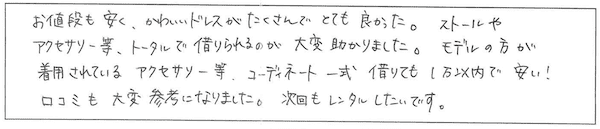 お値段も安く、かわいいドレスがたくさんで とても良かった。 ストールや
アクセサリー等、トータルで借りられるのが 大変助かりました。 モデルの方が
着用されている アクセサリー等、コーディネート一式 借りても 1万以内で 安い!
口コミも 大変参考になりました。 次回も レンタルしたいです。